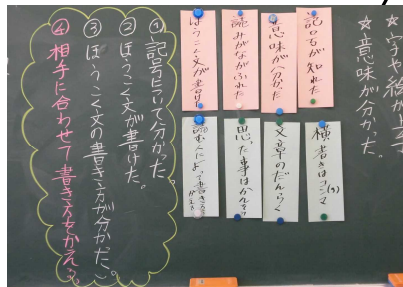 ☆字や絵が上手
☆意味が分かった。
記ごうが知れた
意味が分かった
読みがながふれた
ほうこく文が書けた
横書きはコンマ(,)
文章のだんらく
思った事はかんそう
読む人によって書き方をかえる
①記号について分かった。
②ほうこく文が書けた。
③ほうこく文の書き方が分かったこと。
④相手に合わせて書き方をかえる。